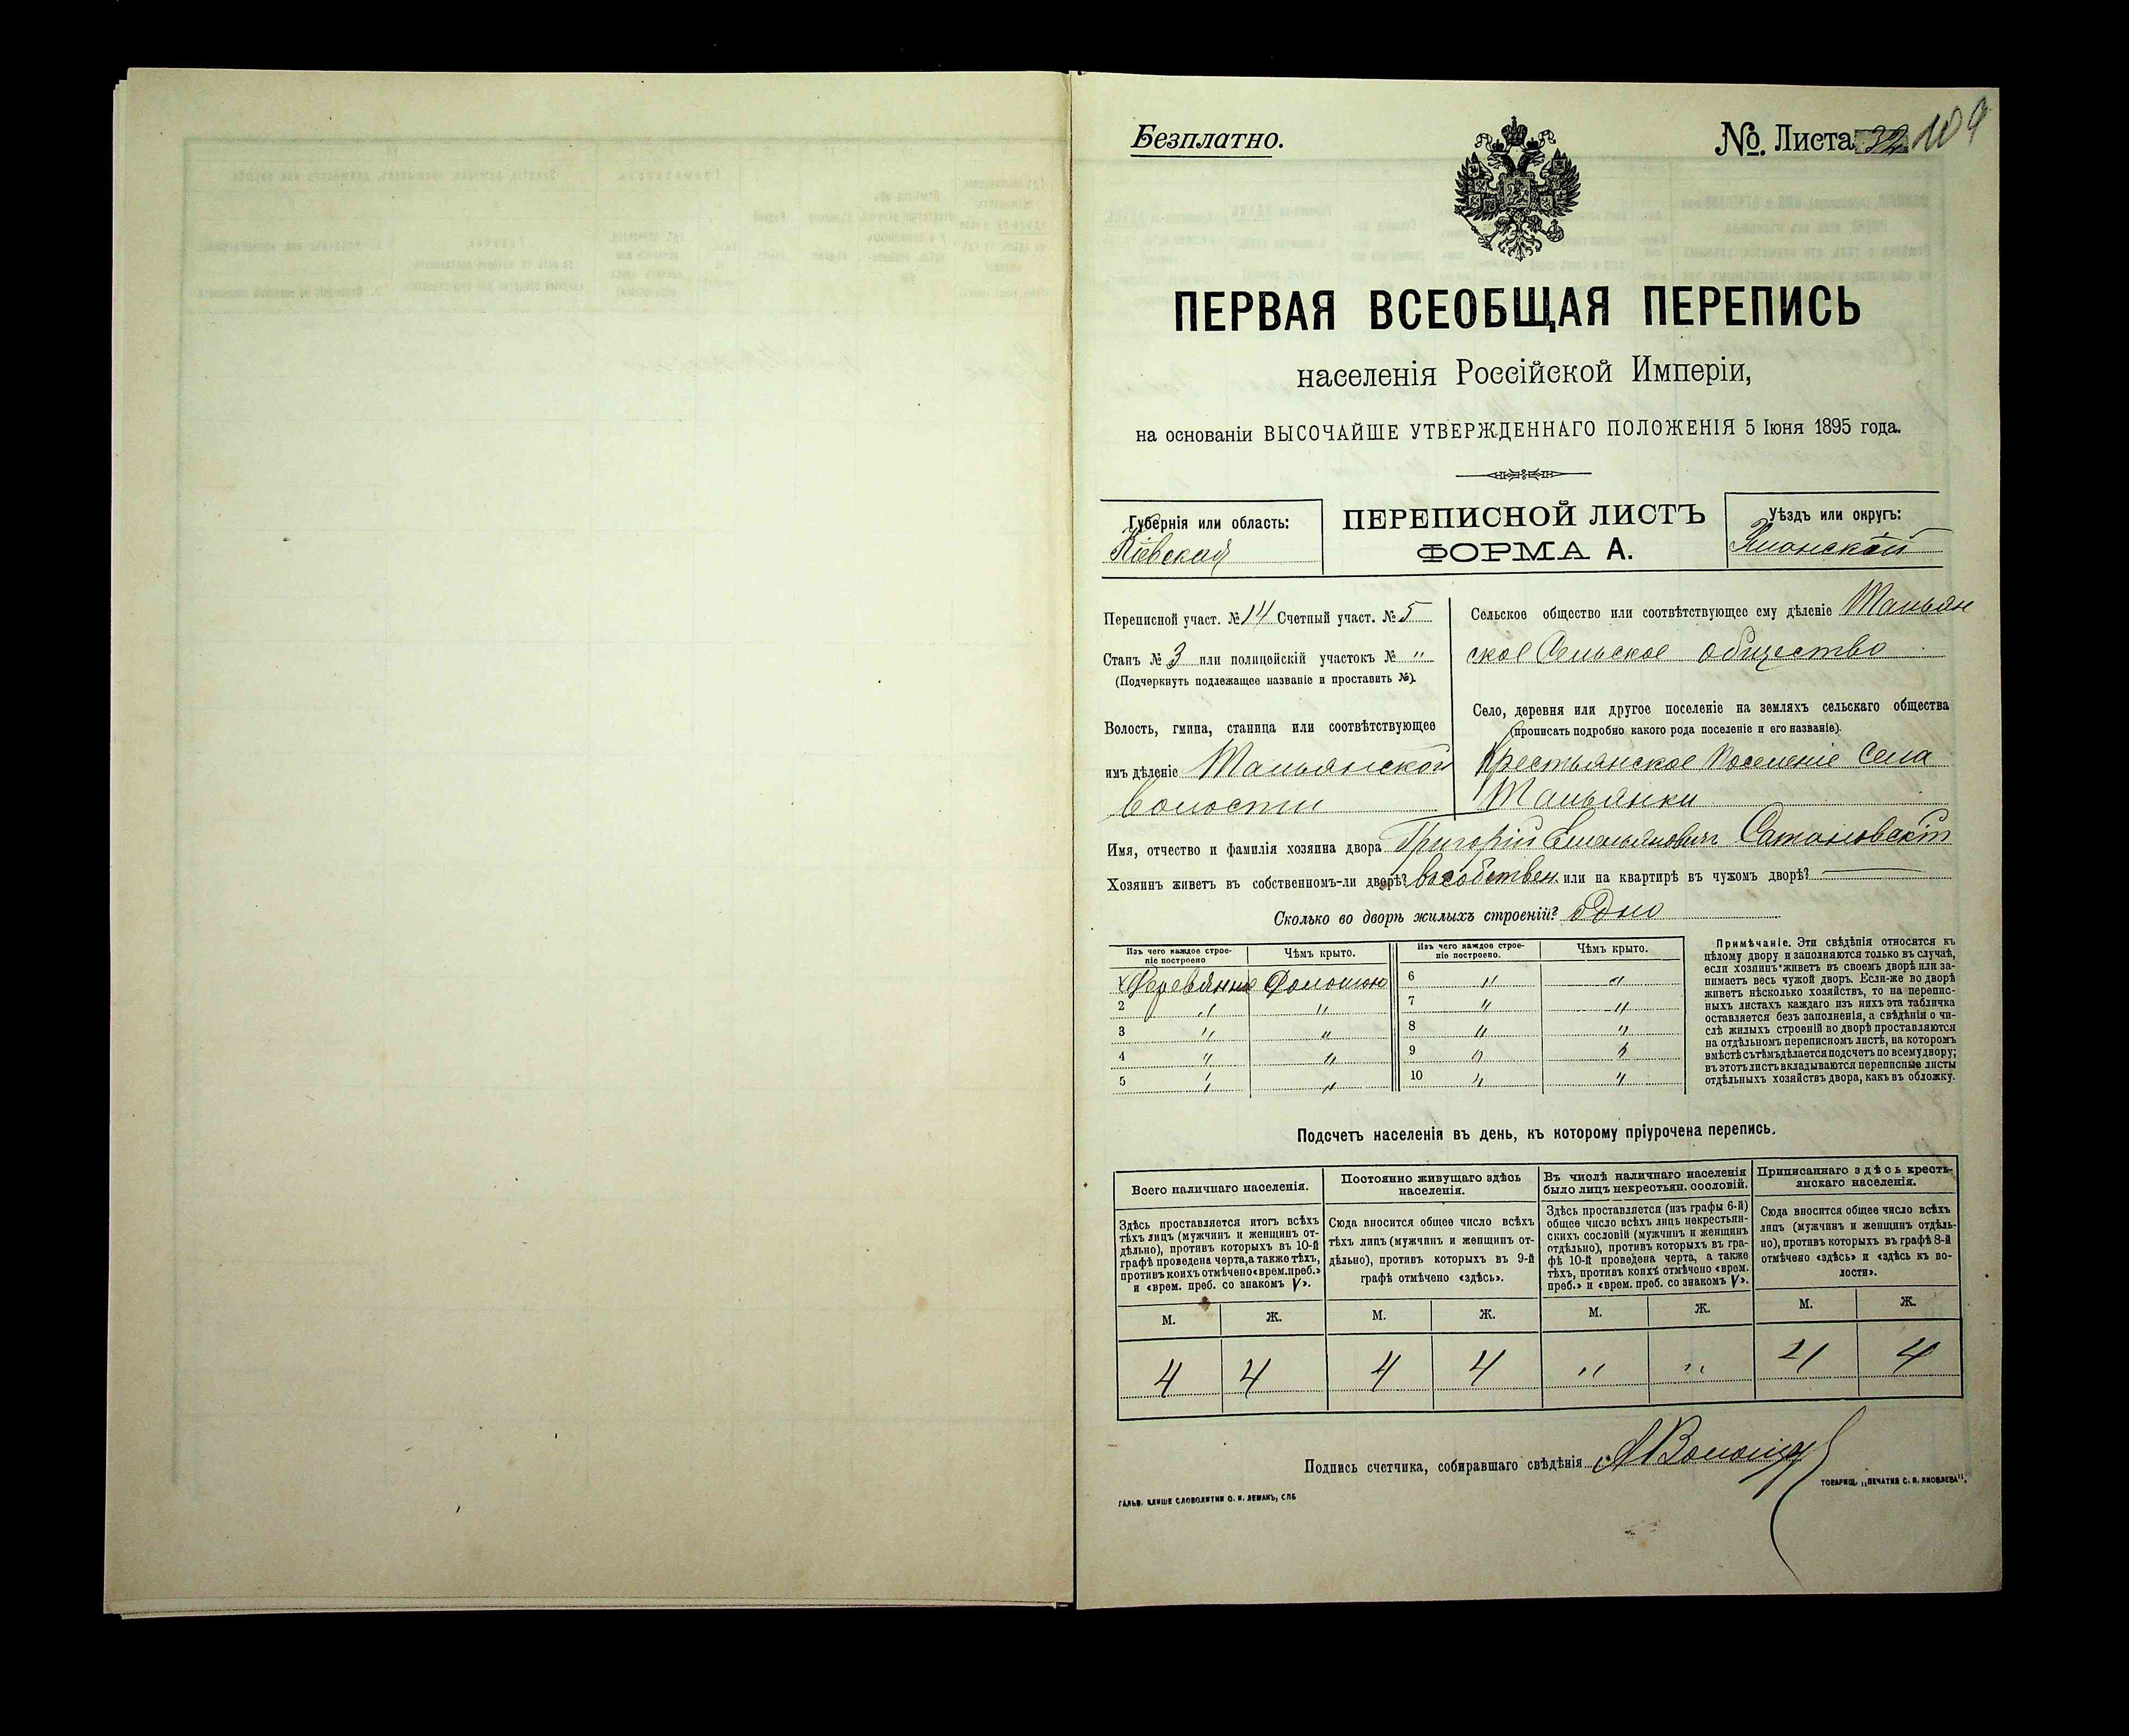 Безплатно.
№. Листа 32 109
ПЕРВАЯ ВСЕОБЩАЯ ПЕРЕПИСЬ
населенія Россійской Имперіи,
на основаніи ВЫСОЧАЙШЕ УТВЕРЖДЕННАГО ПОЛОЖЕНІЯ 5 Іюня 1895 года.
Губернія или область:
Кіевская
ПЕРЕПИСНОЙ ЛИСТЪ
ФОРМА А.
Уѣздъ или округъ:
Уманскій
Переписной участ. № 14 Счетный участ. № 5
Станъ № 3 или полицейскій участокъ № "
(Подчеркнуть подлежащее названіе и проставить №).
Волость, гмина, станица или соотвѣтствующее
имъ дѣленіе Тальянской
волости
Сельское общество или соотвѣтствующее ему дѣленіе Тальян
ское Сельское общество
Село, деревня или другое поселеніе на земляхъ сельскаго общества
(прописать подробно какого рода поселеніе и его названіе).
Крестьянское Поселеніе Села
Тальянки
Имя, отчество и фамилія хозяина двора Григорій Емельяновичъ Сатановскій
Хозяинъ живетъ въ собственномъ-ли дворѣ? въ собствен. или на квартирѣ въ чужомъ дворѣ? —
Сколько во дворѣ жилыхъ строеній? одно
Изъ чего каждое строе-
ніе построено
Чѣмъ крыто.
Изъ чего каждое строе-
ніе построено.
Чѣмъ крыто.
Деревянное Соломою 6 " "
2 " " 7 " "
3 " " 8 " "
4 " " 9 " "
5 " " 10 " "
Примѣчаніе. Эти свѣдѣнія относятся къ
цѣлому двору и заполняются только въ случаѣ,
если хозяинъ живетъ въ своемъ дворѣ или за-
нимаетъ весь чужой дворъ. Если-же во дворѣ
живетъ нѣсколько хозяйствъ, то на перепис-
ныхъ листахъ каждаго изъ нихъ эта табличка
оставляется безъ заполненія, а свѣдѣнія о чи-
слѣ жилыхъ строеній во дворѣ проставляются
на отдѣльномъ переписномъ листѣ, на которомъ
вмѣстѣ съ тѣмъ дѣлается подсчетъ по всему двору;
въ этотъ листъ вкладываются переписные листы
отдѣльныхъ хозяйствъ двора, какъ въ обложку.
Подсчетъ населенія въ день, къ которому пріурочена перепись.
Всего наличнаго населенія.
Постоянно живущаго здѣсь
населенія.
Въ числѣ наличнаго населенія
было лицъ некрестьян. сословій.
Приписаннаго здѣсь кресть-
янскаго населенія.
Здѣсь проставляется итогъ всѣхъ
тѣхъ лицъ (мужчинъ и женщинъ от-
дѣльно), противъ которыхъ въ 10-й
графѣ проведена черта, а также тѣхъ,
противъ коихъ отмѣчено «врем. преб.»
и «врем. преб. со знакомъ V».
Сюда вносится общее число всѣхъ
тѣхъ лицъ (мужчинъ и женщинъ от-
дѣльно), противъ которыхъ въ 9-й
графѣ отмѣчено «здѣсь».
Здѣсь проставляется (изъ графы 6-й)
общее число всѣхъ лицъ некрестьян-
скихъ сословій (мужчинъ и женщинъ
отдѣльно), противъ которыхъ въ гра-
фѣ 10-й проведена черта, а также
тѣхъ, противъ коихъ отмѣчено «врем.
преб.» и «врем. преб. со знакомъ V».
Сюда вносится общее число всѣхъ
лицъ (мужчинъ и женщинъ отдѣль-
но), противъ которыхъ въ графѣ 8-й
отмѣчено «здѣсь» и «здѣсь къ во-
лости».
М. Ж. М. Ж. М. Ж. М. Ж.
4 4 4 4 " " 4 4
Подпись счетчика, собиравшаго свѣдѣнія
ГАЛЬВ. КЛИШЕ СЛОВОЛИТНИ О. И. ЛЕМАНЪ, СПБ
ТОВАРИЩ. „ПЕЧАТНЯ С. П. ЯКОВЛЕВА".